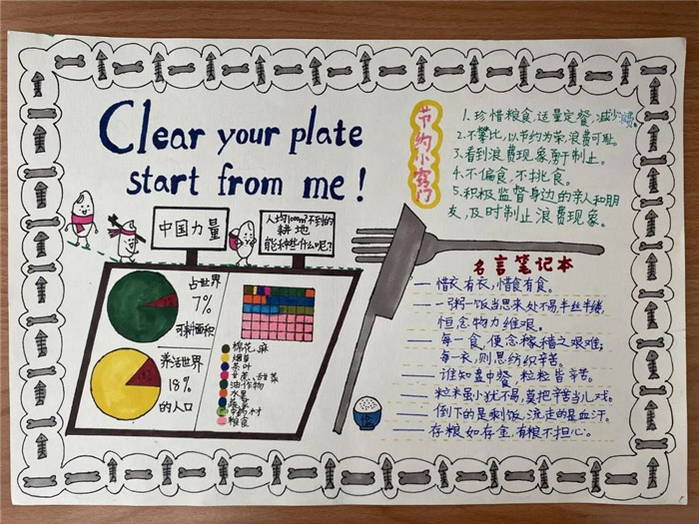 Clear your plate
start from me!
节约小窍门
1.珍惜粮食,适量定餐,减少浪费。
2.不攀比,以节约为荣,浪费可耻。
3.看到浪费现象勇于制止。
4.不偏食,不挑食。
5.积极监督身边的亲人和朋
友,及时制止浪费现象。
中国力量
人均1000m²不到的
耕地
能种些什么呢?
占世界
7%
可耕面积
养活世界
18%
的人口
棉花、麻
烟草
茶叶
甜菜
油作物
水果
蔬菜
药材
粮食
名言笔记本
惜衣有衣,惜食有食。
一粥一饭当思来处不易,半丝半缕,
恒念物力维艰。
每一食,便念稼穑之艰难;
每一衣,则思纺织辛苦。
谁知盘中餐,粒粒皆辛苦。
粒米虽小犹不易,莫把辛苦当儿戏。
倒下的是剩饭,流走的是血汗。
存粮如存金,有粮不担心。